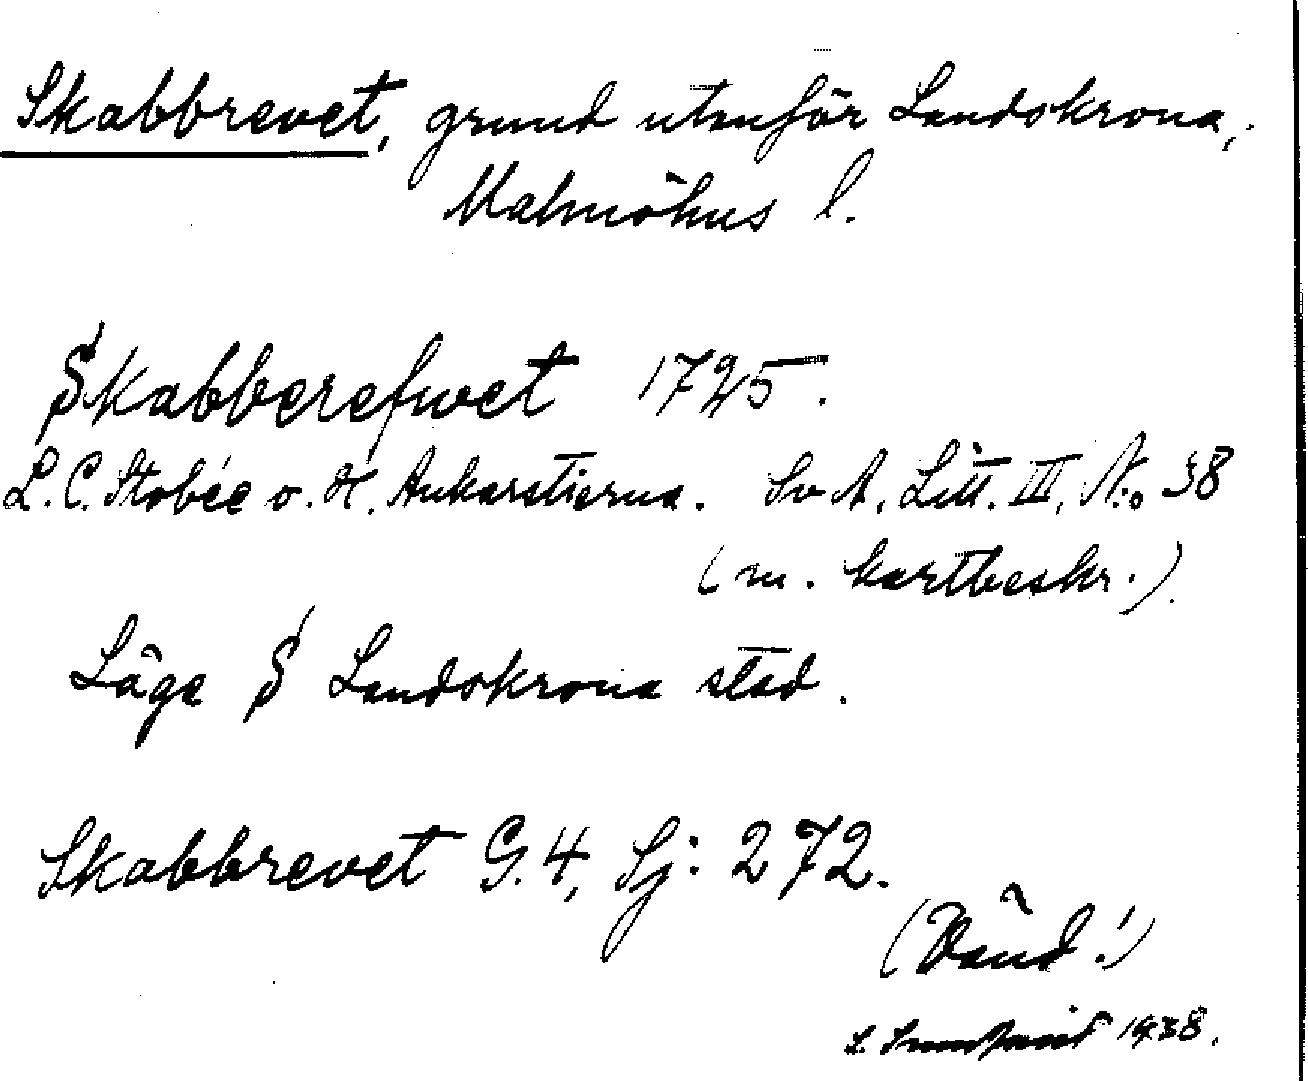 Skabbrevet, grund utanför Landskrona,
Malmöhus l.
Skabberefwet 1725.
L. C. Stobée o. H. Ankarstierna. Sv A, Litt. III, No 38
(m. kartbeskr.)
Läge S Landskrona stad.
Skabbrevet G. 4, Sj: 272.
(Vänd!)
1938.